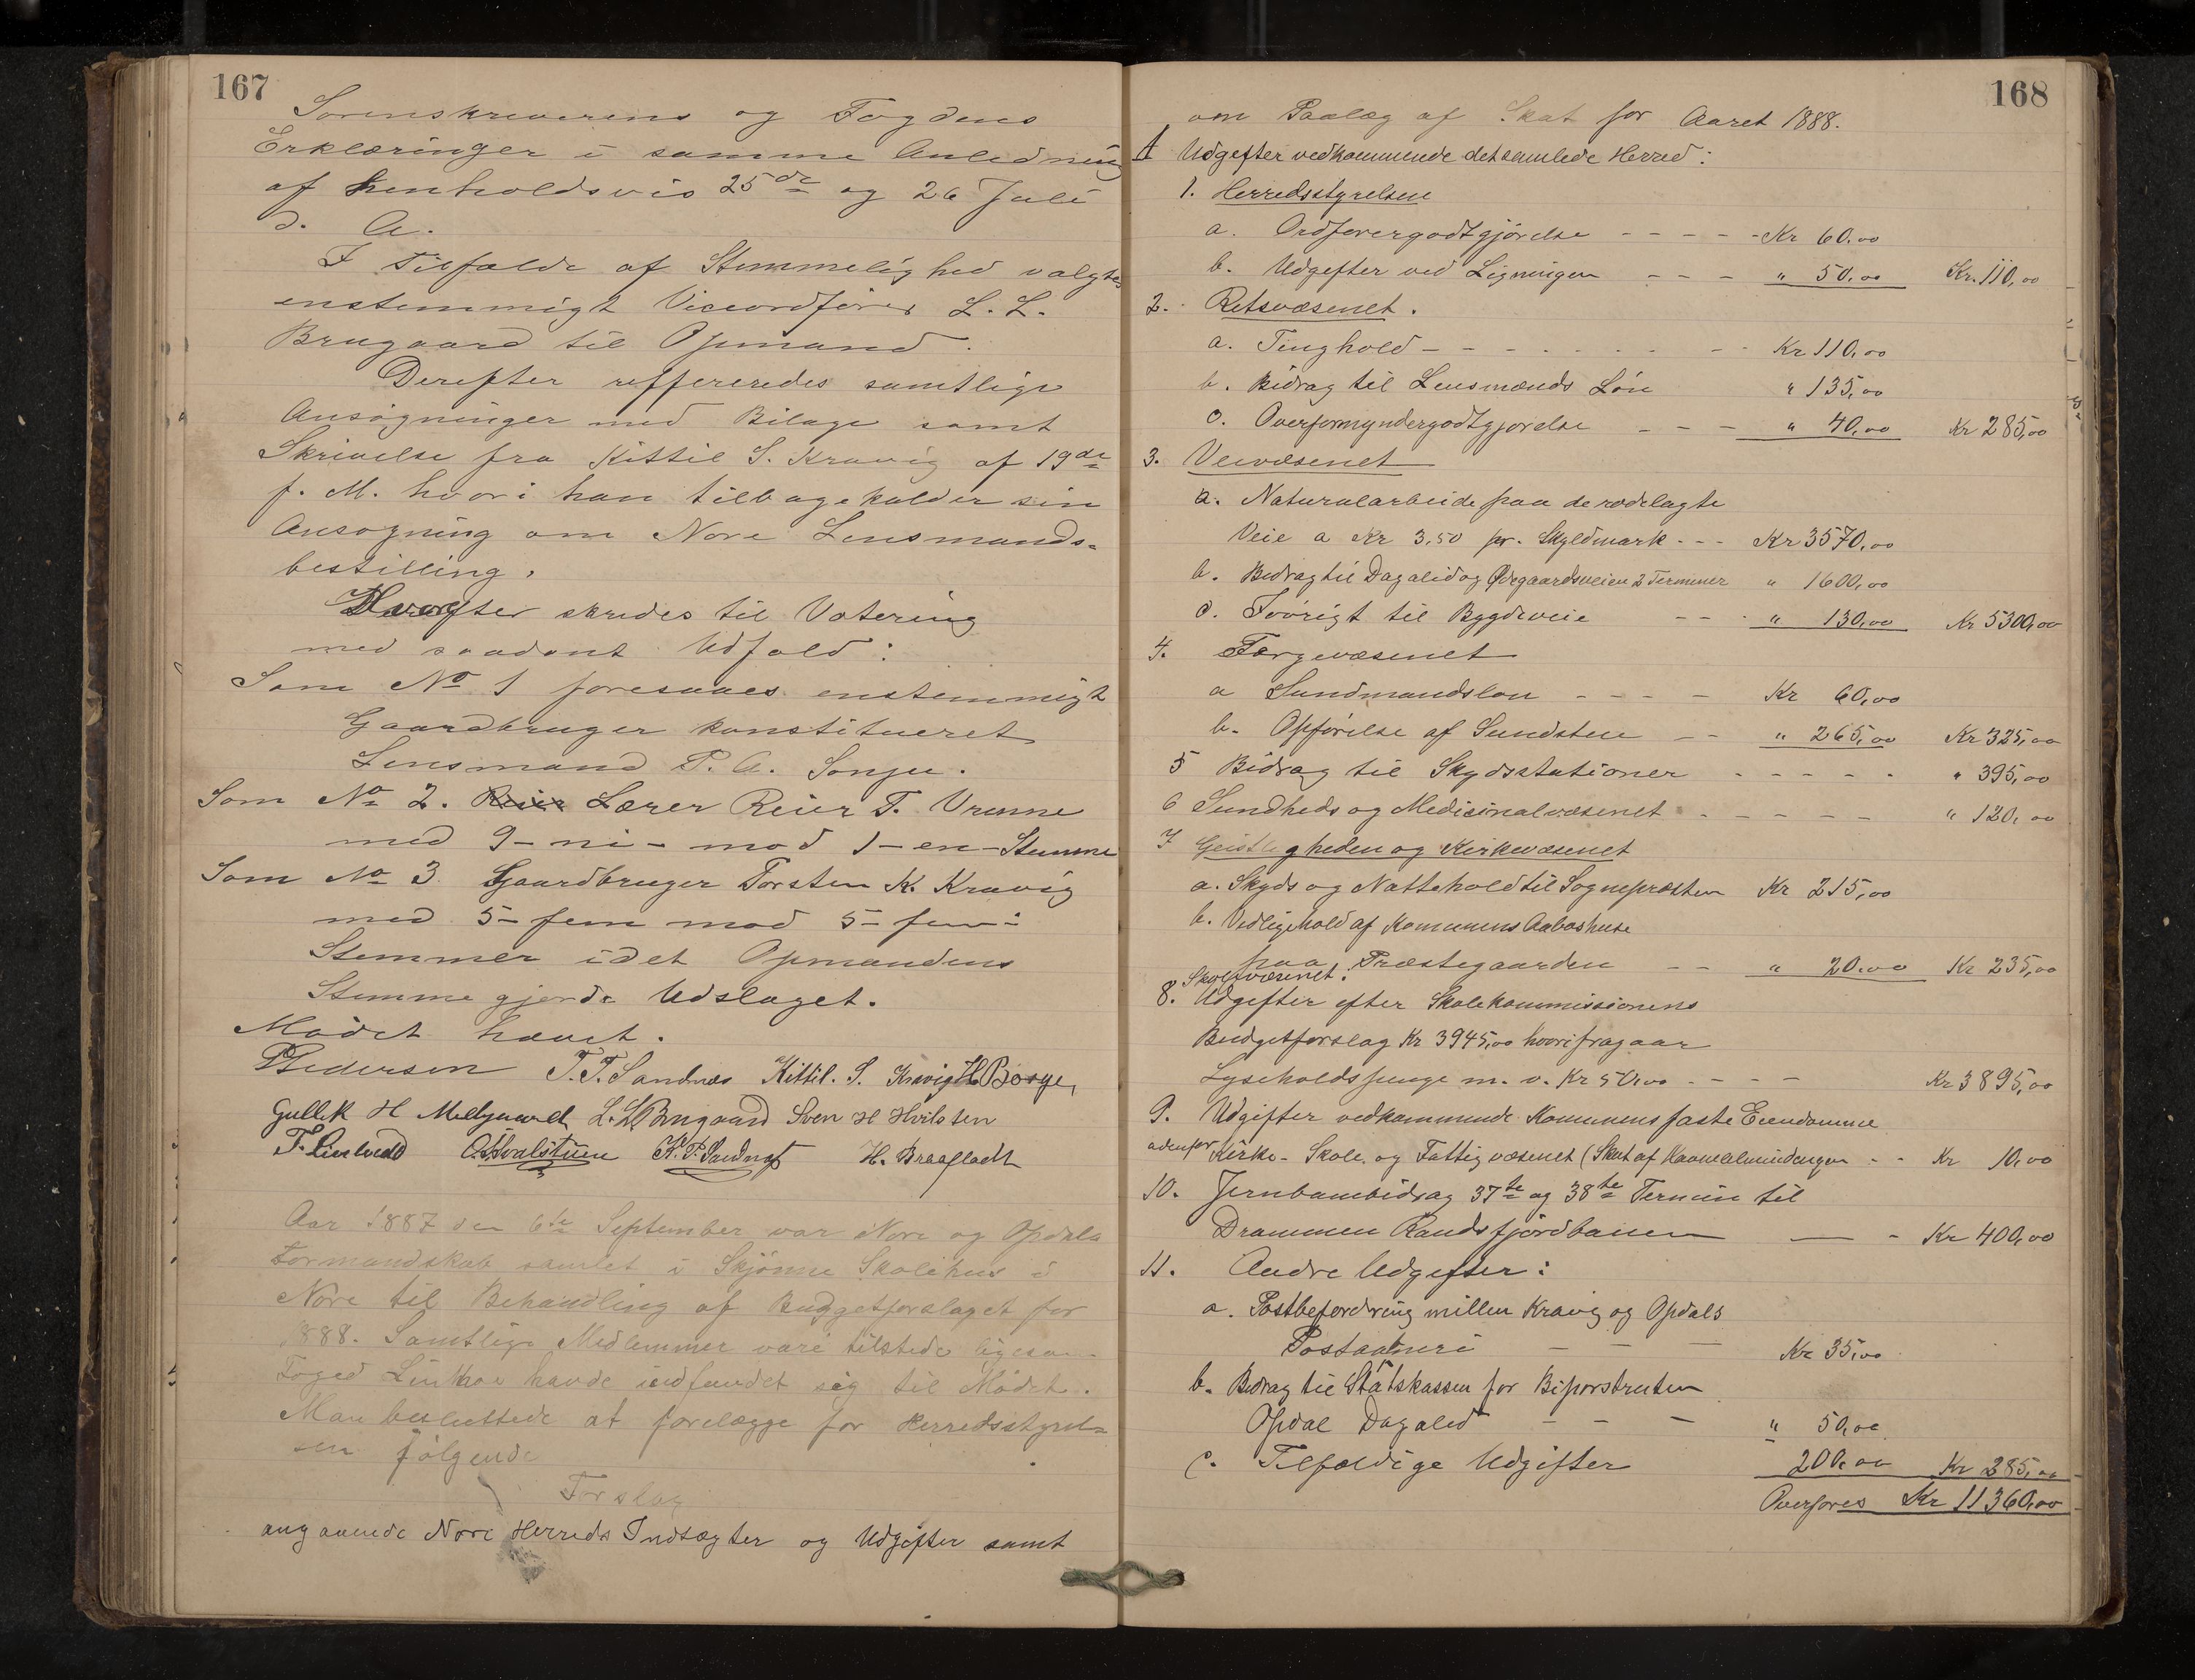 167
Sorenskriverens og Fogdens
Erklæringer i samme Anledning
af henholdsvis 25de og 26 Juli
d. A.
I Tilfælde af Stemmelighed valgtes
enstemmigt Viceordfører L. L.
Brugaard til Opmand.
Derefter reffereredes samtlige
Ansøgninger med Bilage samt
Skrivelse fra Kittil S. Kravig af 19de
f. M. hvori han tilbagekalder sin
Ansøgning om Nore Lensmands-
bestilling.
Herefter skredes til Votering
med saadant Udfald:
Som No 1 foreslaaes enstemmigt
Gaardbruger konstitueret
Lensmand P. A. Sonju.
Som No 2. Reier Lærer Reier T. Vrenne
med 9-ni- mod 1-en-Stemme
Som No 3 Gaardbruger Torsten K. Kravig
med 5-fem mod 5-fem-
Stemmer idet Opmandens
Stemme gjorde Udslaget.
Mødet hævet.
P Pedersen T. T. Sandnæs Kittil. S. Kravig H Borge,
Gullik H L. L. Brugaard Sven H
K. P. Sandnæs H. Braafladt
Aar 1887 den 6te September var Nore og Opdals
Formandskab samlet i Skjønne Skolehus i
Nore til Behandling af Budgetforslaget for
1888. Samtlige Medlemmer vare tilstede ligesom
Foged havde indfundet sig til Mødet.
Man besluttede at forelægge for Herredsstyrel-
sen følgende
Forslag
angaaende Nore Herreds Indtægter og Udgifter samt
168
om Paalæg af Skat for Aaret 1888.
A Udgefter vedkommende det samlede Herred:
1. Herredsstyrelsen
a. Ordførergodtgjørelse - - - - - Kr 60,00
b. Udgefter ved Ligningen - - - " 50,00 Kr. 110,00
2. Retsvæsenet.
a. Tinghold - - - - - - - Kr 110,00
b. Bidrag til Lensmands Løn " 135,00
c. Overformyndergodtgjørelse - - - " 40,00 Kr 285,00
3. Veivæsenet
a. Naturalarbeide paa de rodelagte
Veie a Kr 3,50 pr. Skyldmark - - - Kr 3570,00
b. Bidrag til Dagalid og Ødegaardsveien 2 Terminer " 1600,00
c. Iøvrigt til Bygdeveie - - - " 130,00 Kr 5300,00
4. Færgevæsenet
a Sundmandsløn - - - - Kr 60,00
b. Opførelse af Sundsten - - " 265,00 Kr 325,00
5 Bidrag til Skydsstationer - - - - - " 395,00
6 Sundheds og Medicinalvæsenet - - - - - " 120,00
7 Geistligheden og Kirkevæsenet
a. Skyds og Nattehold til Sognepræsten Kr 215,00
b. Vedligehold af Kommunens Aaboshuse
paa Præstegaarden - - " 20,00 Kr 235,00
Skolevæsenet.
8. Udgifter efter Skolekommissionens
Budgetforslag Kr 3945,00 hvori fragaar
Lyseholdspenge m. v. Kr 50,00 - - - - Kr 3895,00
9. Udgifter vedkommende Kommunens faste Eiendomme
udenfor Kirke- Skole- og Fattigvæsenet (Skat af - - Kr 10,00
10. Jernbanebidrag 37te og 38te Termin til
Drammen Randsfjordbanen — - Kr 400,00
11. Andre Udgifter:
a. Postbefordring mellem Kravig og Opdals
Postaabneri - - - Kr 35,00
b. Bidrag til Statskassen for Bipostruten
Opdal Dagalid - - - " 50,00
c. Tilfældige Udgifter 200,00 Kr 285,00
Overføres Kr 11360,00